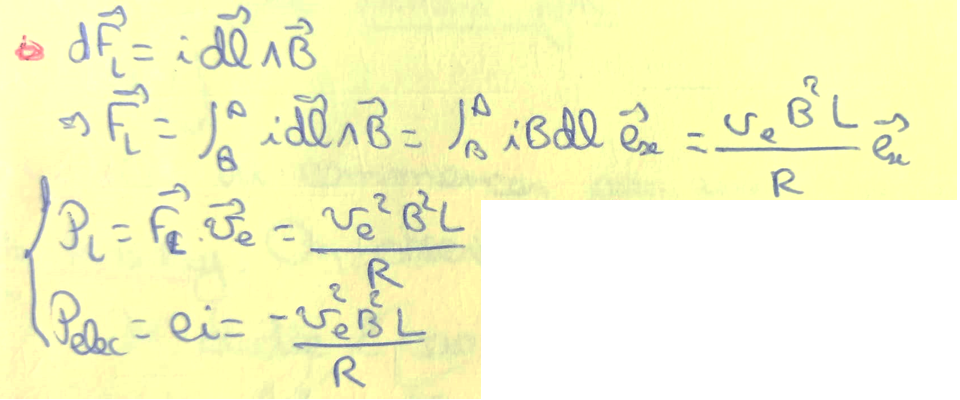 b dF⃗_L = i dl⃗ ∧ B⃗
⇒ F⃗_L = ∫_B^A i dl⃗ ∧ B⃗ = ∫_B^A i B dl e⃗_x = v_e B² L / R e⃗_x
P_L = F⃗_L . v⃗_e = v_e² B² L / R
P_elec = ei = - v_e² B² L / R